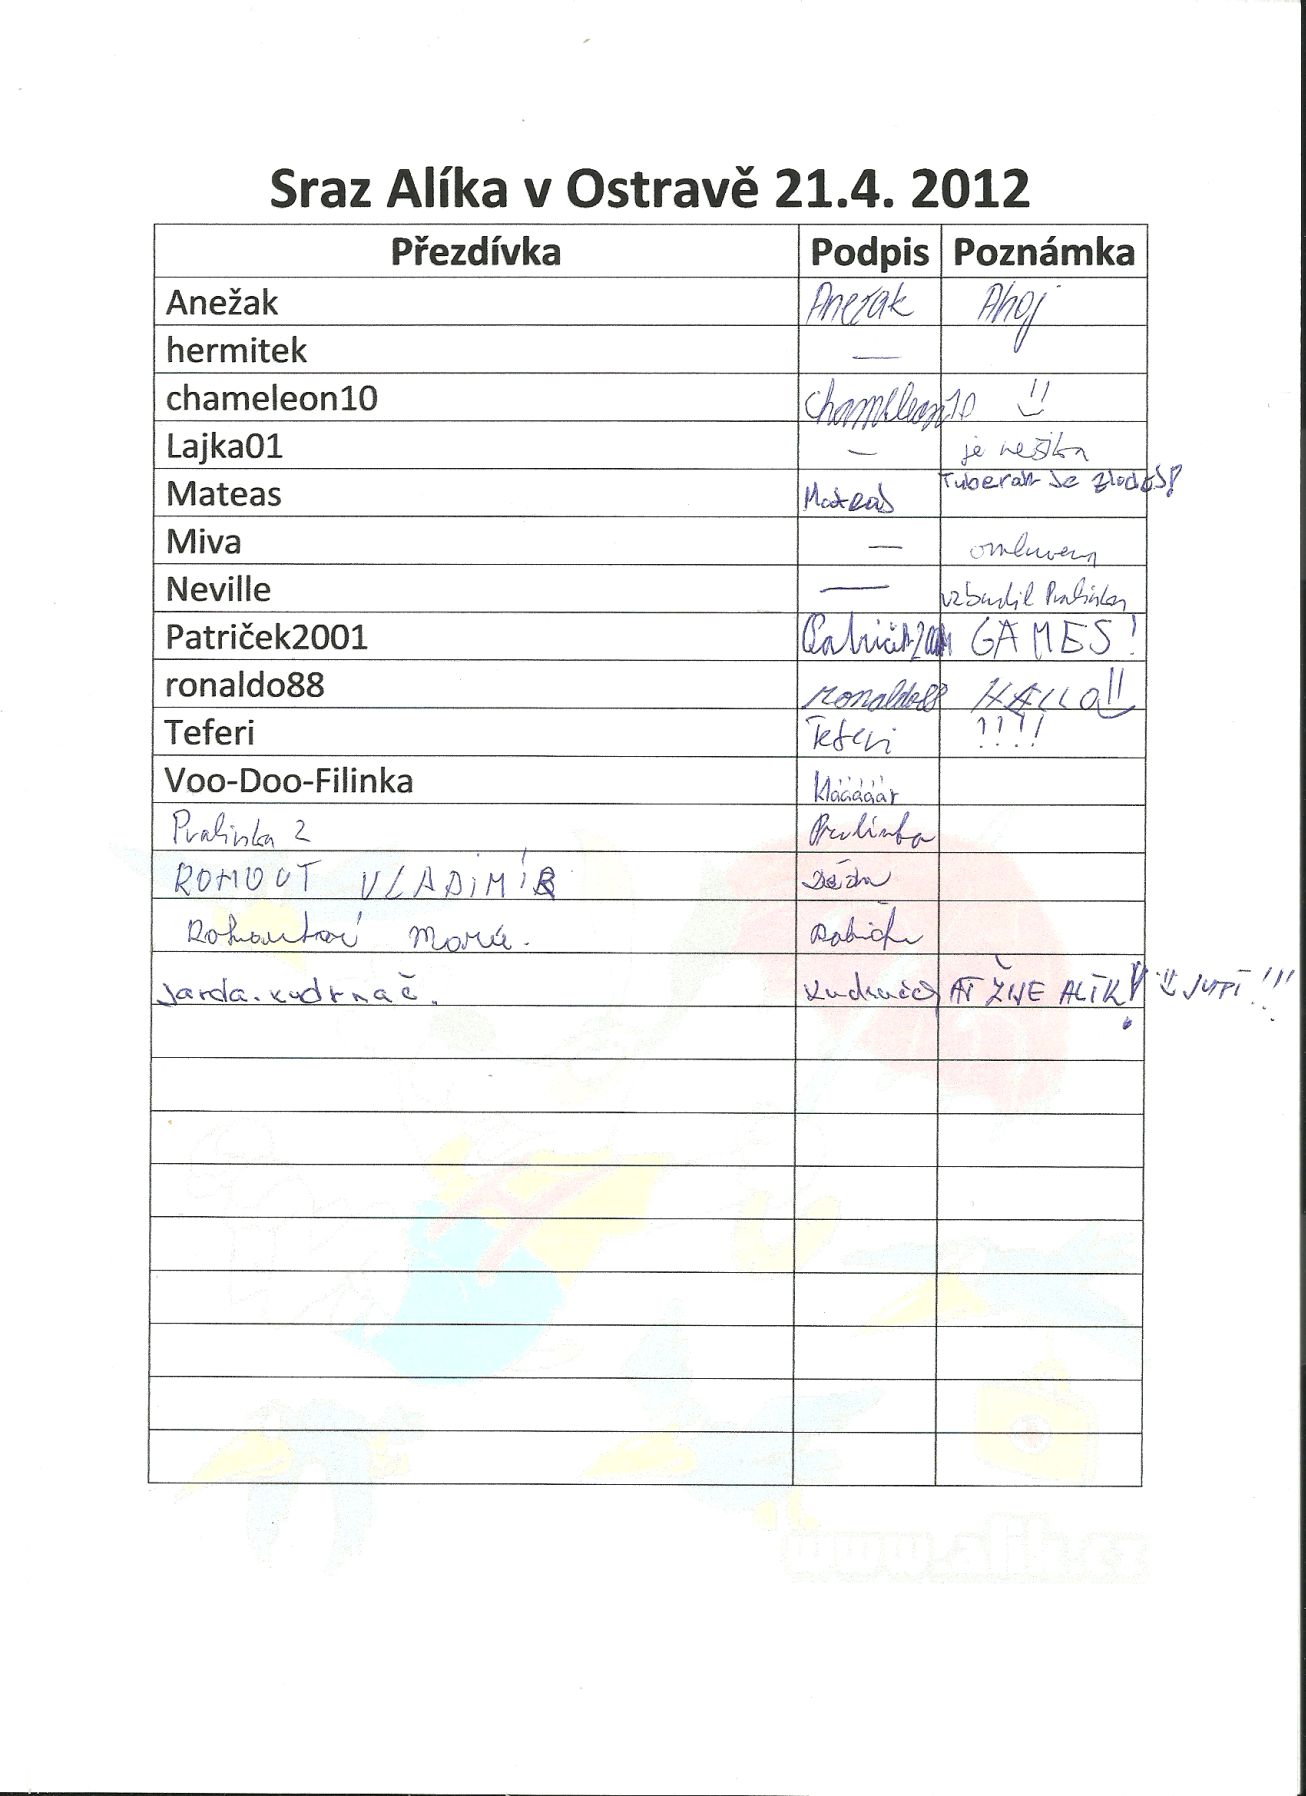 Sraz Alíka v Ostravě 21.4. 2012
Přezdívka Podpis Poznámka
Anežak Anežak Ahoj
hermitek —
chameleon10 chameleon10
Lajka01 — je
Mateas Mateas se
Miva — omluvena
Neville — vzbudil Pralinku
Patriček2001 Patriček2001 GAMES!
ronaldo88 ronaldo88 HALLO!!
Teferi Teferi !!!!
Voo-Doo-Filinka kláááááár
Pralinka 2 Pralinka
VLADIMÍR Děda
Babička
Jarda.kudrnač. AŤ ŽIJE ALÍK! JUPÍ!!!
www.alik.cz